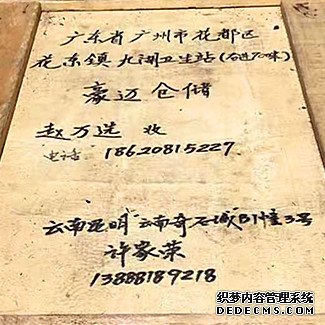 广东省广州市花都区
花东镇九湖卫生站(合进石味)
豪迈仓储
赵万选 收
电话 18620815227
云南昆明 云南奇石城B1幢3号
许家荣
13888189218
织梦内容管理系统
DEDECMS.COM